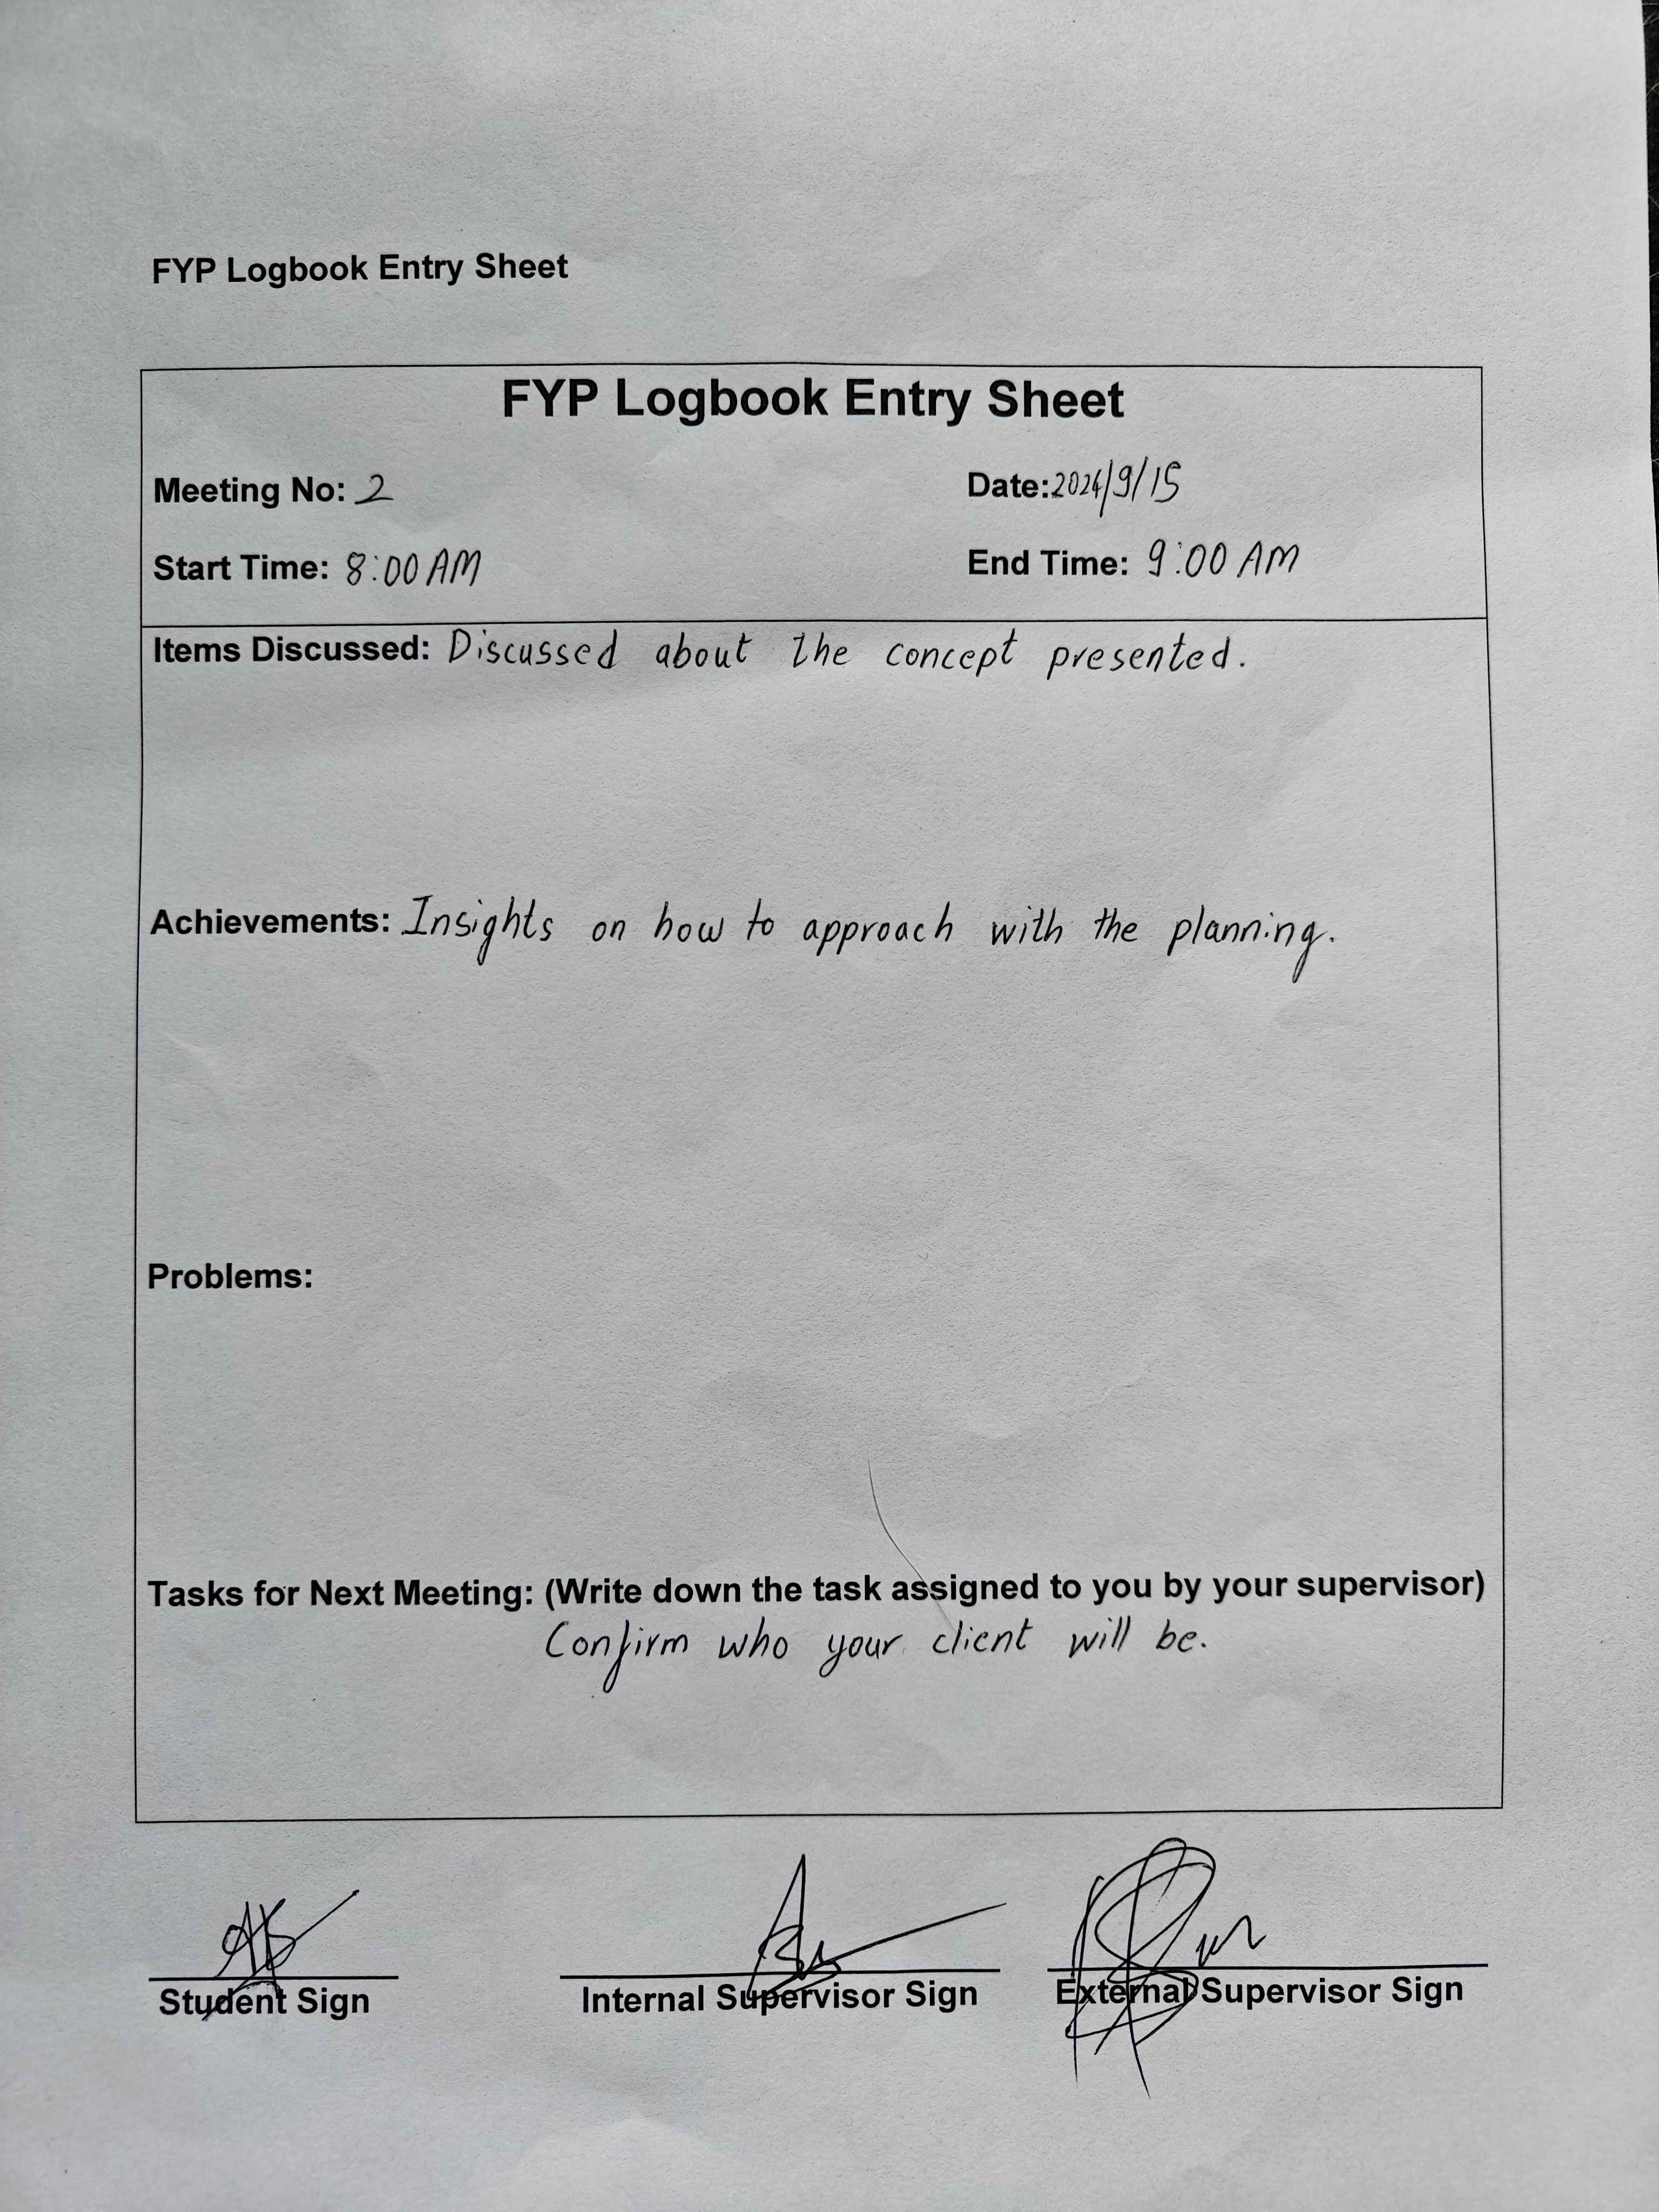 FYP Logbook Entry Sheet
FYP Logbook Entry Sheet
Meeting No: 2 Date: 2024/9/15
Start Time: 8:00 AM End Time: 9:00 AM
Items Discussed: Discussed about the concept presented.
Achievements: Insights on how to approach with the planning.
Problems:
Tasks for Next Meeting: (Write down the task assigned to you by your supervisor)
Confirm who your client will be.
Student Sign Internal Supervisor Sign External Supervisor Sign